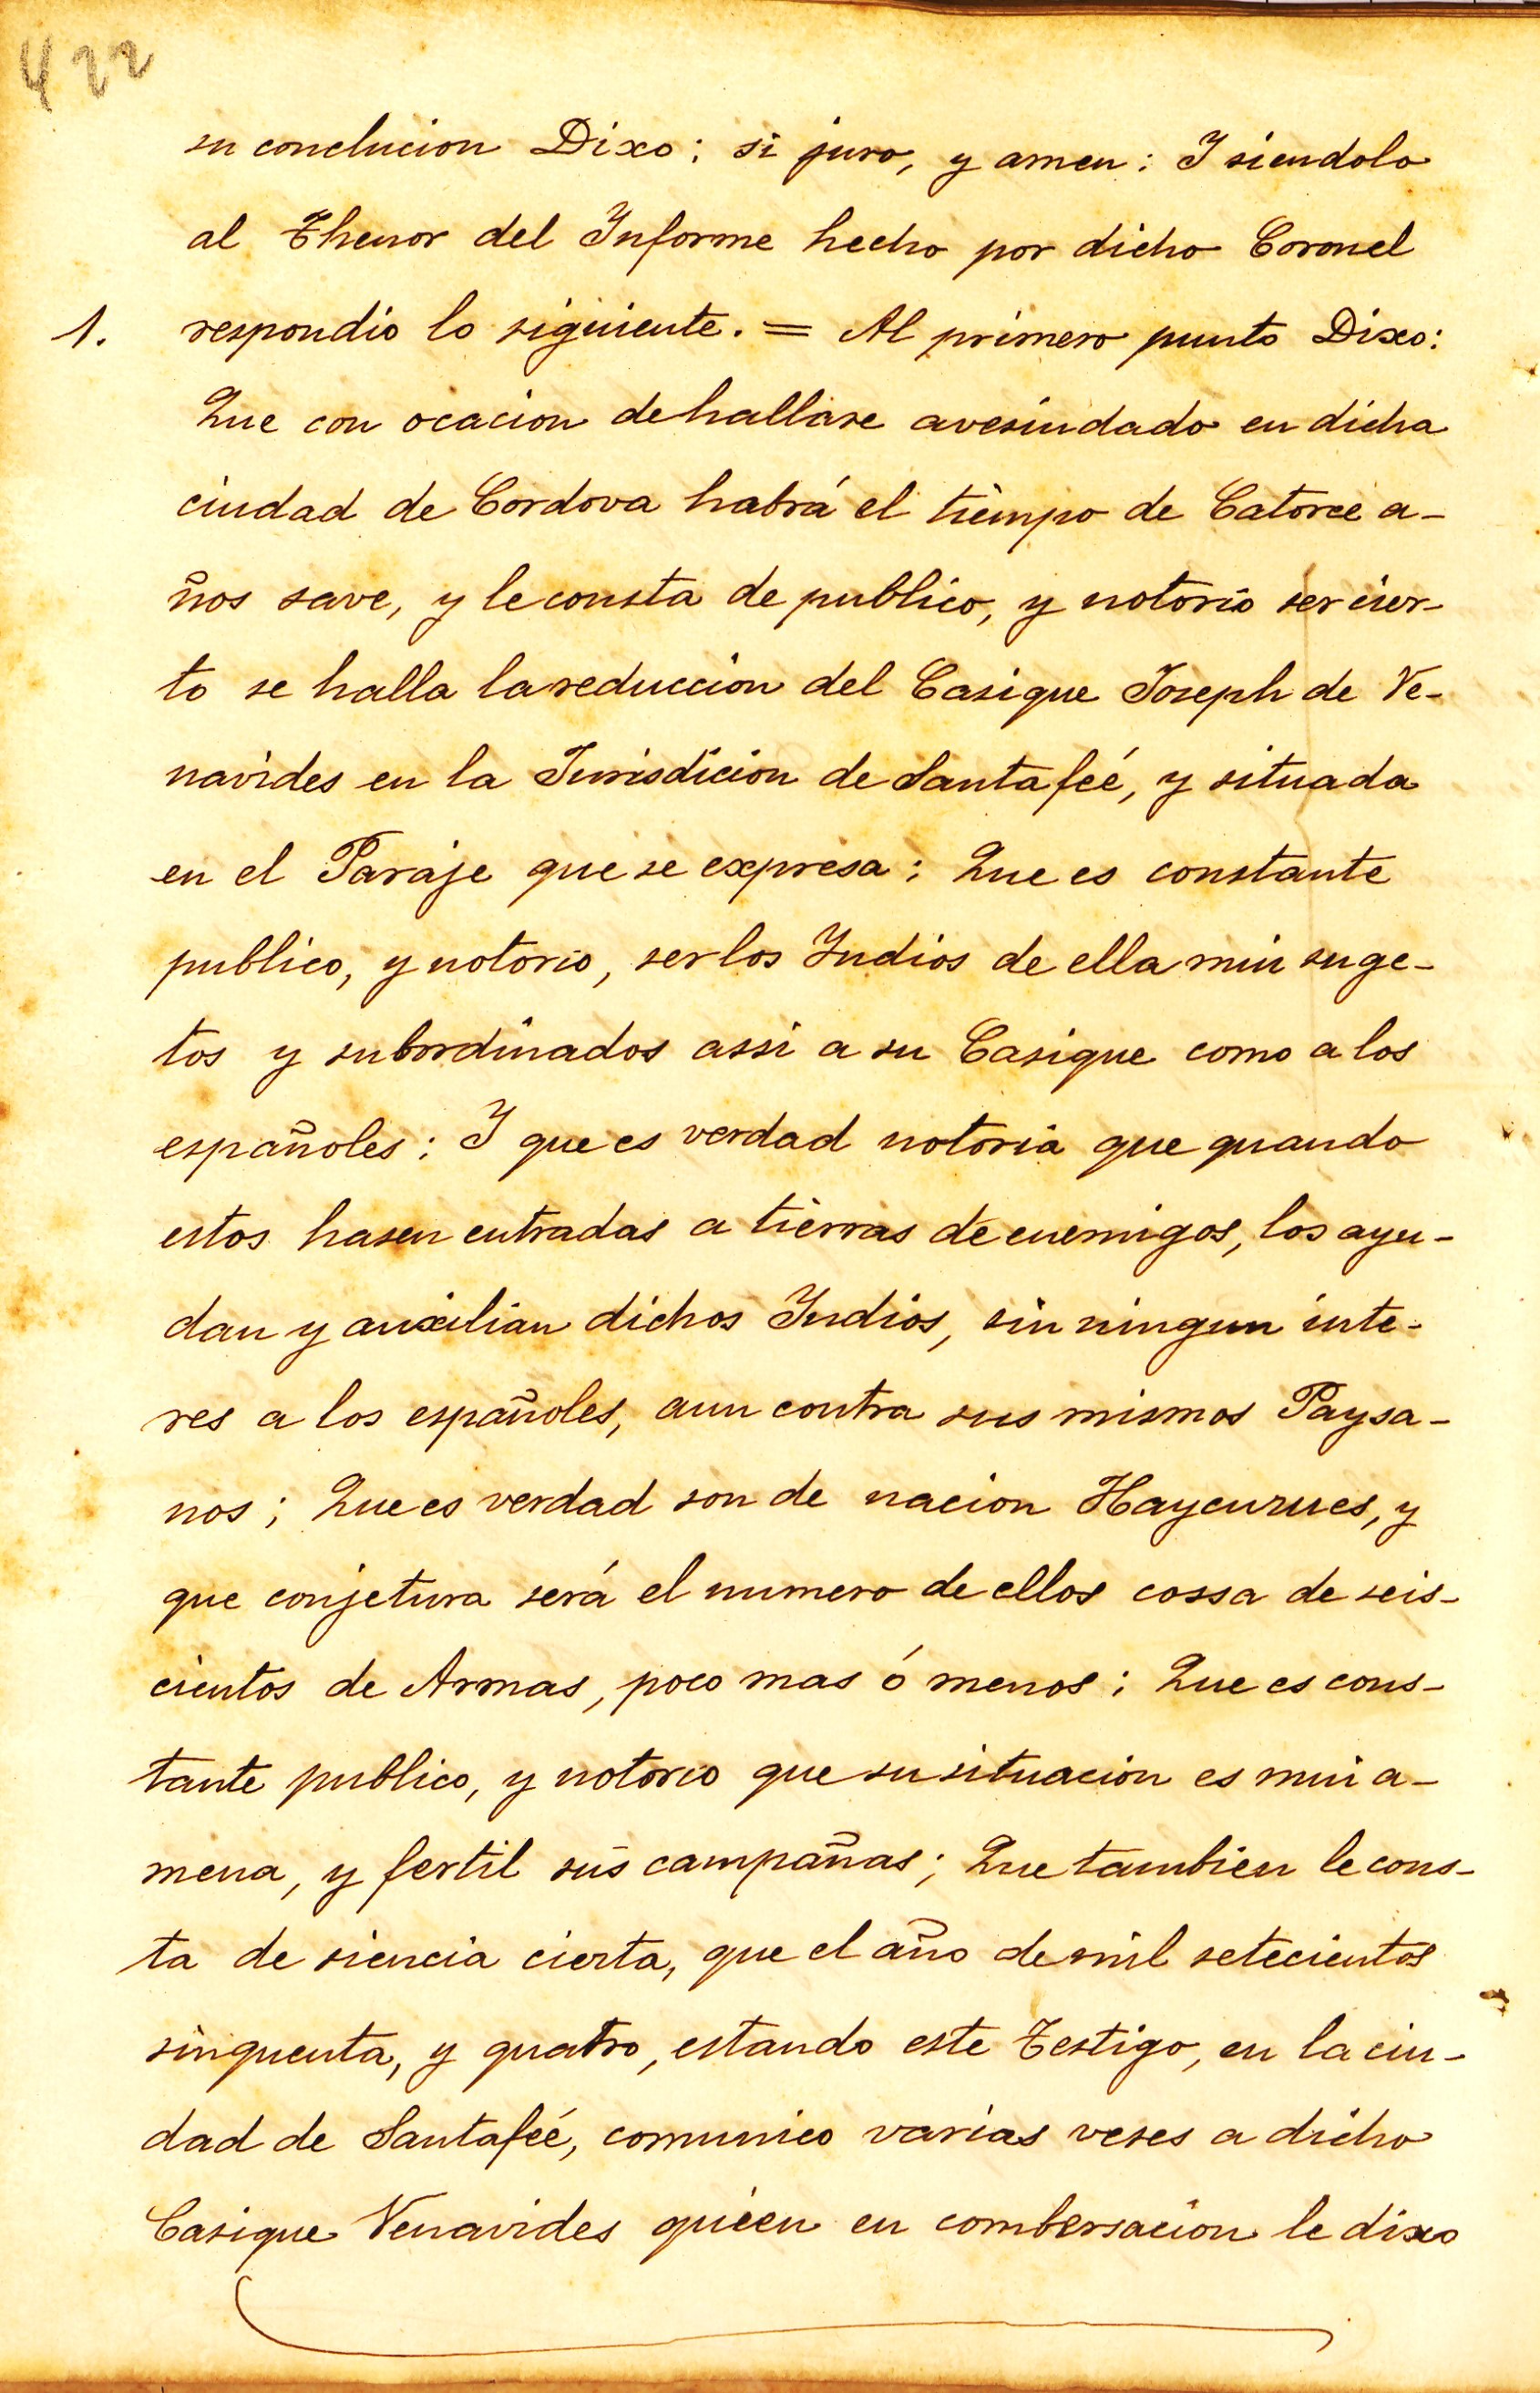 422
su conclucion Dixo; si juro, y amen: I siendolo
al Thenor del Informe hecho por dicho Coronel
1. respondio lo siguiente. = Al primero punto Dixo:
Que con ocacion de hallarse avesindado en dicha
ciudad de Cordova habrá el tiempo de Catorce a-
ños save, y le consta de publico, y notorio ser cier-
to se halla la reduccion del Casique Joseph de Ve-
navides en la Jurisdicion de Santa feé, y situada
en el Paraje que se expresa: Que es constante
publico, y notorio, ser los Indios de ella mui suge-
tos y subordinados assi a su Casique como a los
españoles: I que es verdad notoria que quando
estos hasen entradas a tierras de enemigos, los ayu-
dan y auxilian dichos Indios, sin ningun inte-
res a los españoles, aun contra sus mismos Paysa-
nos; Que es verdad son de nacion Haycurues, y
que conjetura será el numero de ellos cossa de seis-
cientos de Armas, poco mas ó menos; Que es cons-
tante publico, y notorio que su situacion es mui a-
mena, y fertil sus campañas; Que tambien le cons-
ta de siencia cierta, que el año de mil setecientos
sinquenta, y quatro, estando este Testigo, en la ciu-
dad de Santafeé, comunico varias veses a dicho
Casique Venavides quien en combersacion le dixo